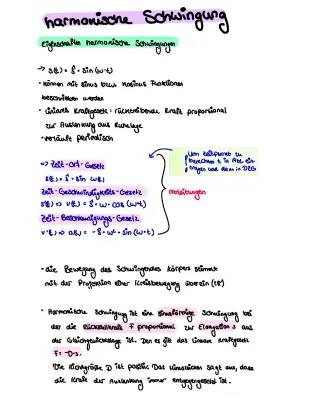 harmonische Schwingung
Eigenschaften harmonische Schwingungen
→ s(t) = ŝ · sin (ω·t)
· können mit sinus bzw. Kosinus Funktionen
beschrieben werden
· lineares Kraftgesetz: rücktreibende Kraft proportional
zur Auslenkung aus Ruhelage
· verläuft periodisch
Um Zeitpunkt zu
berechnen t in Abl. ein-
tragen und dann in DZG
=> Zeit-Ort-Gesetz
s(t) = ŝ · sin ω(t)
Zeit-Geschwindigkeits-Gesetz
s'(t) => v(t) = ŝ · ω · cos (ω·t)
Ableitungen
Zeit-Beschleunigungs-Gesetz
v'(t) => a(t) = -ŝ · ω² · sin (ω·t)
· die Bewegung des Schwingendes Körpers stimmt
mit der Projektion einer Kreisbewegung überein
· Harmonische Schwingung ist eine sinusförmige Schwingung bei
der die Rückstellkraft F proportional zur Elongation s aus
der Gleichgewichtslage ist. Den es gilt das lineare Kraftgesetz
F = -D·s.
Die Richtgröße D ist positiv. Das Minuszeichen sagt aus, dass
die Kraft der Auslenkung immer entgegengesetzt ist.